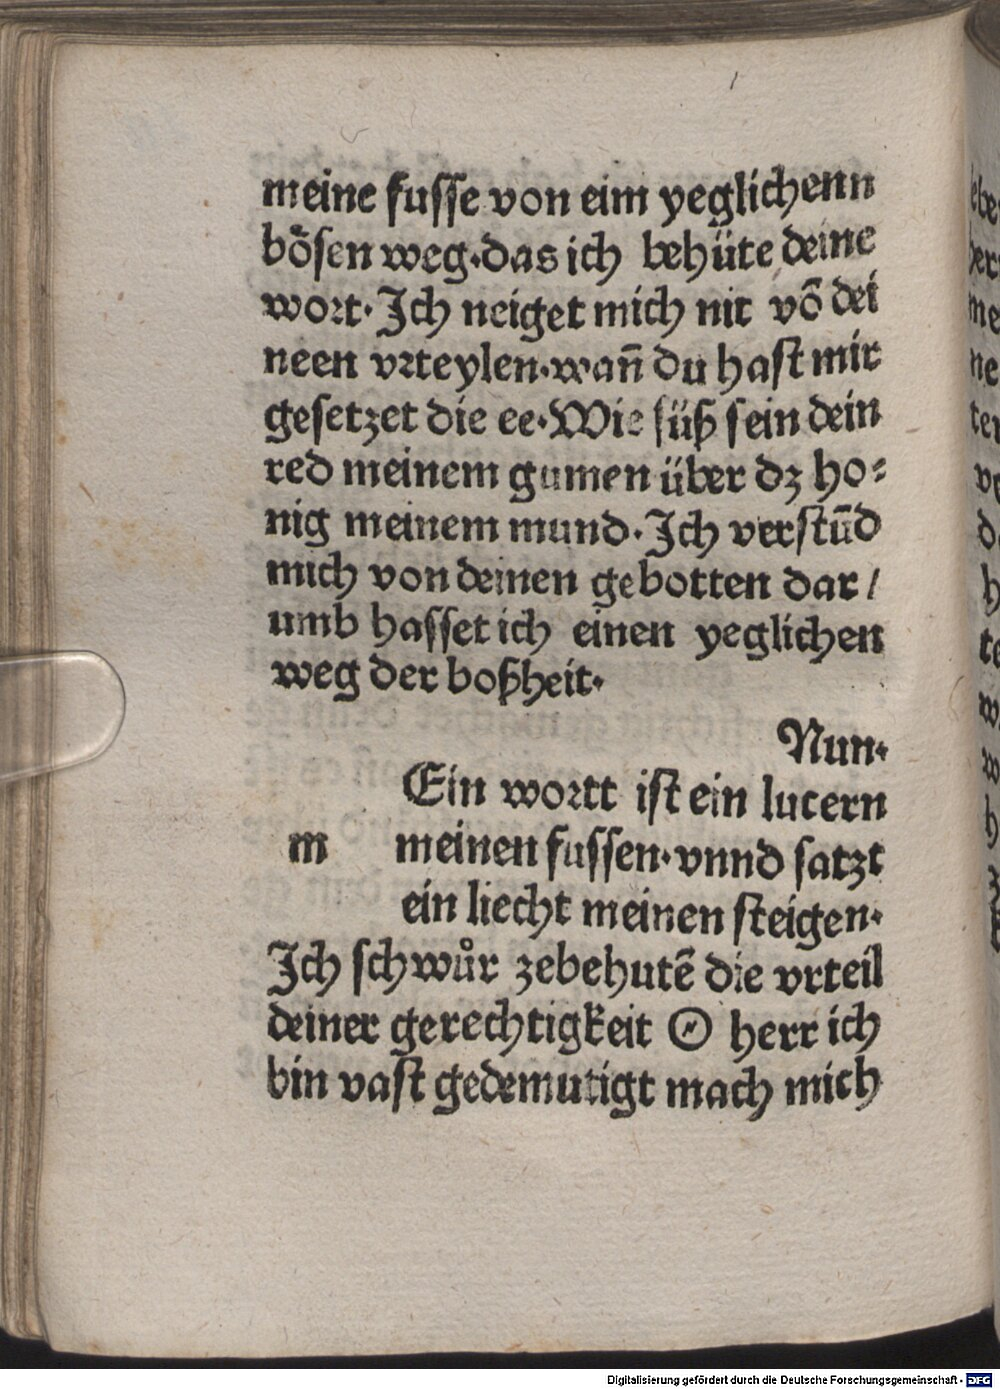 meine fusse von eim yeglichenn
bösen weg·das ich behüte deine
wort· Ich neiget mich nit võ dei
neen vrteylen·wañ du hast mir
gesetzet die ee·Wie süß sein dein
red meinem gumen über dz ho⸗
nig meinem mund· Ich verstũd
mich von deinen gebotten dar/
umb hasset ich einen yeglichen
weg der boßheit·
Nun·
Ein wortt ist ein lucern
m meinen fussen·vnnd satzt
ein liecht meinen steigen·
Ich schwůr zebehutē die vrteil
deiner gerechtigkeit O herr ich
bin vast gedemutigt mach mich
Digitalisierung gefördert durch die Deutsche Forschungsgemeinschaft - DFG